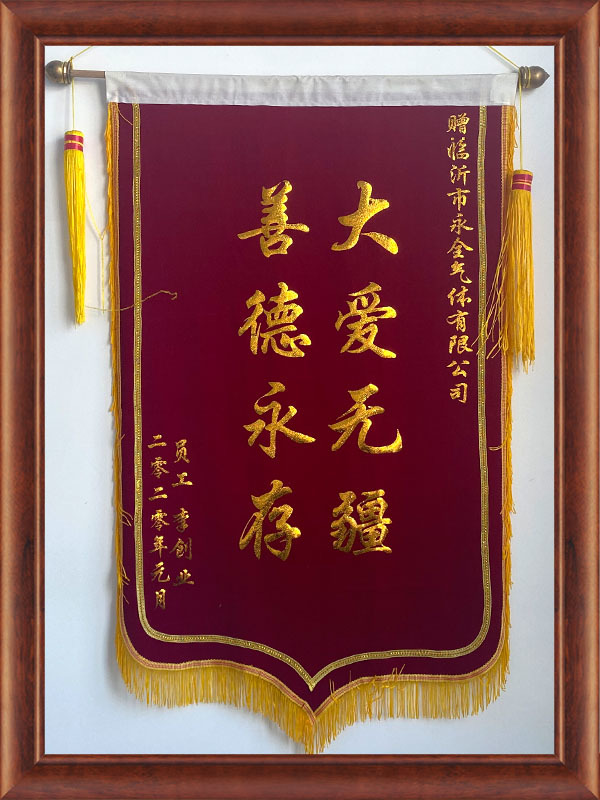 赠临沂市永全气体有限公司
大爱无疆
善德永存
员工 李创业
二零二零年元月